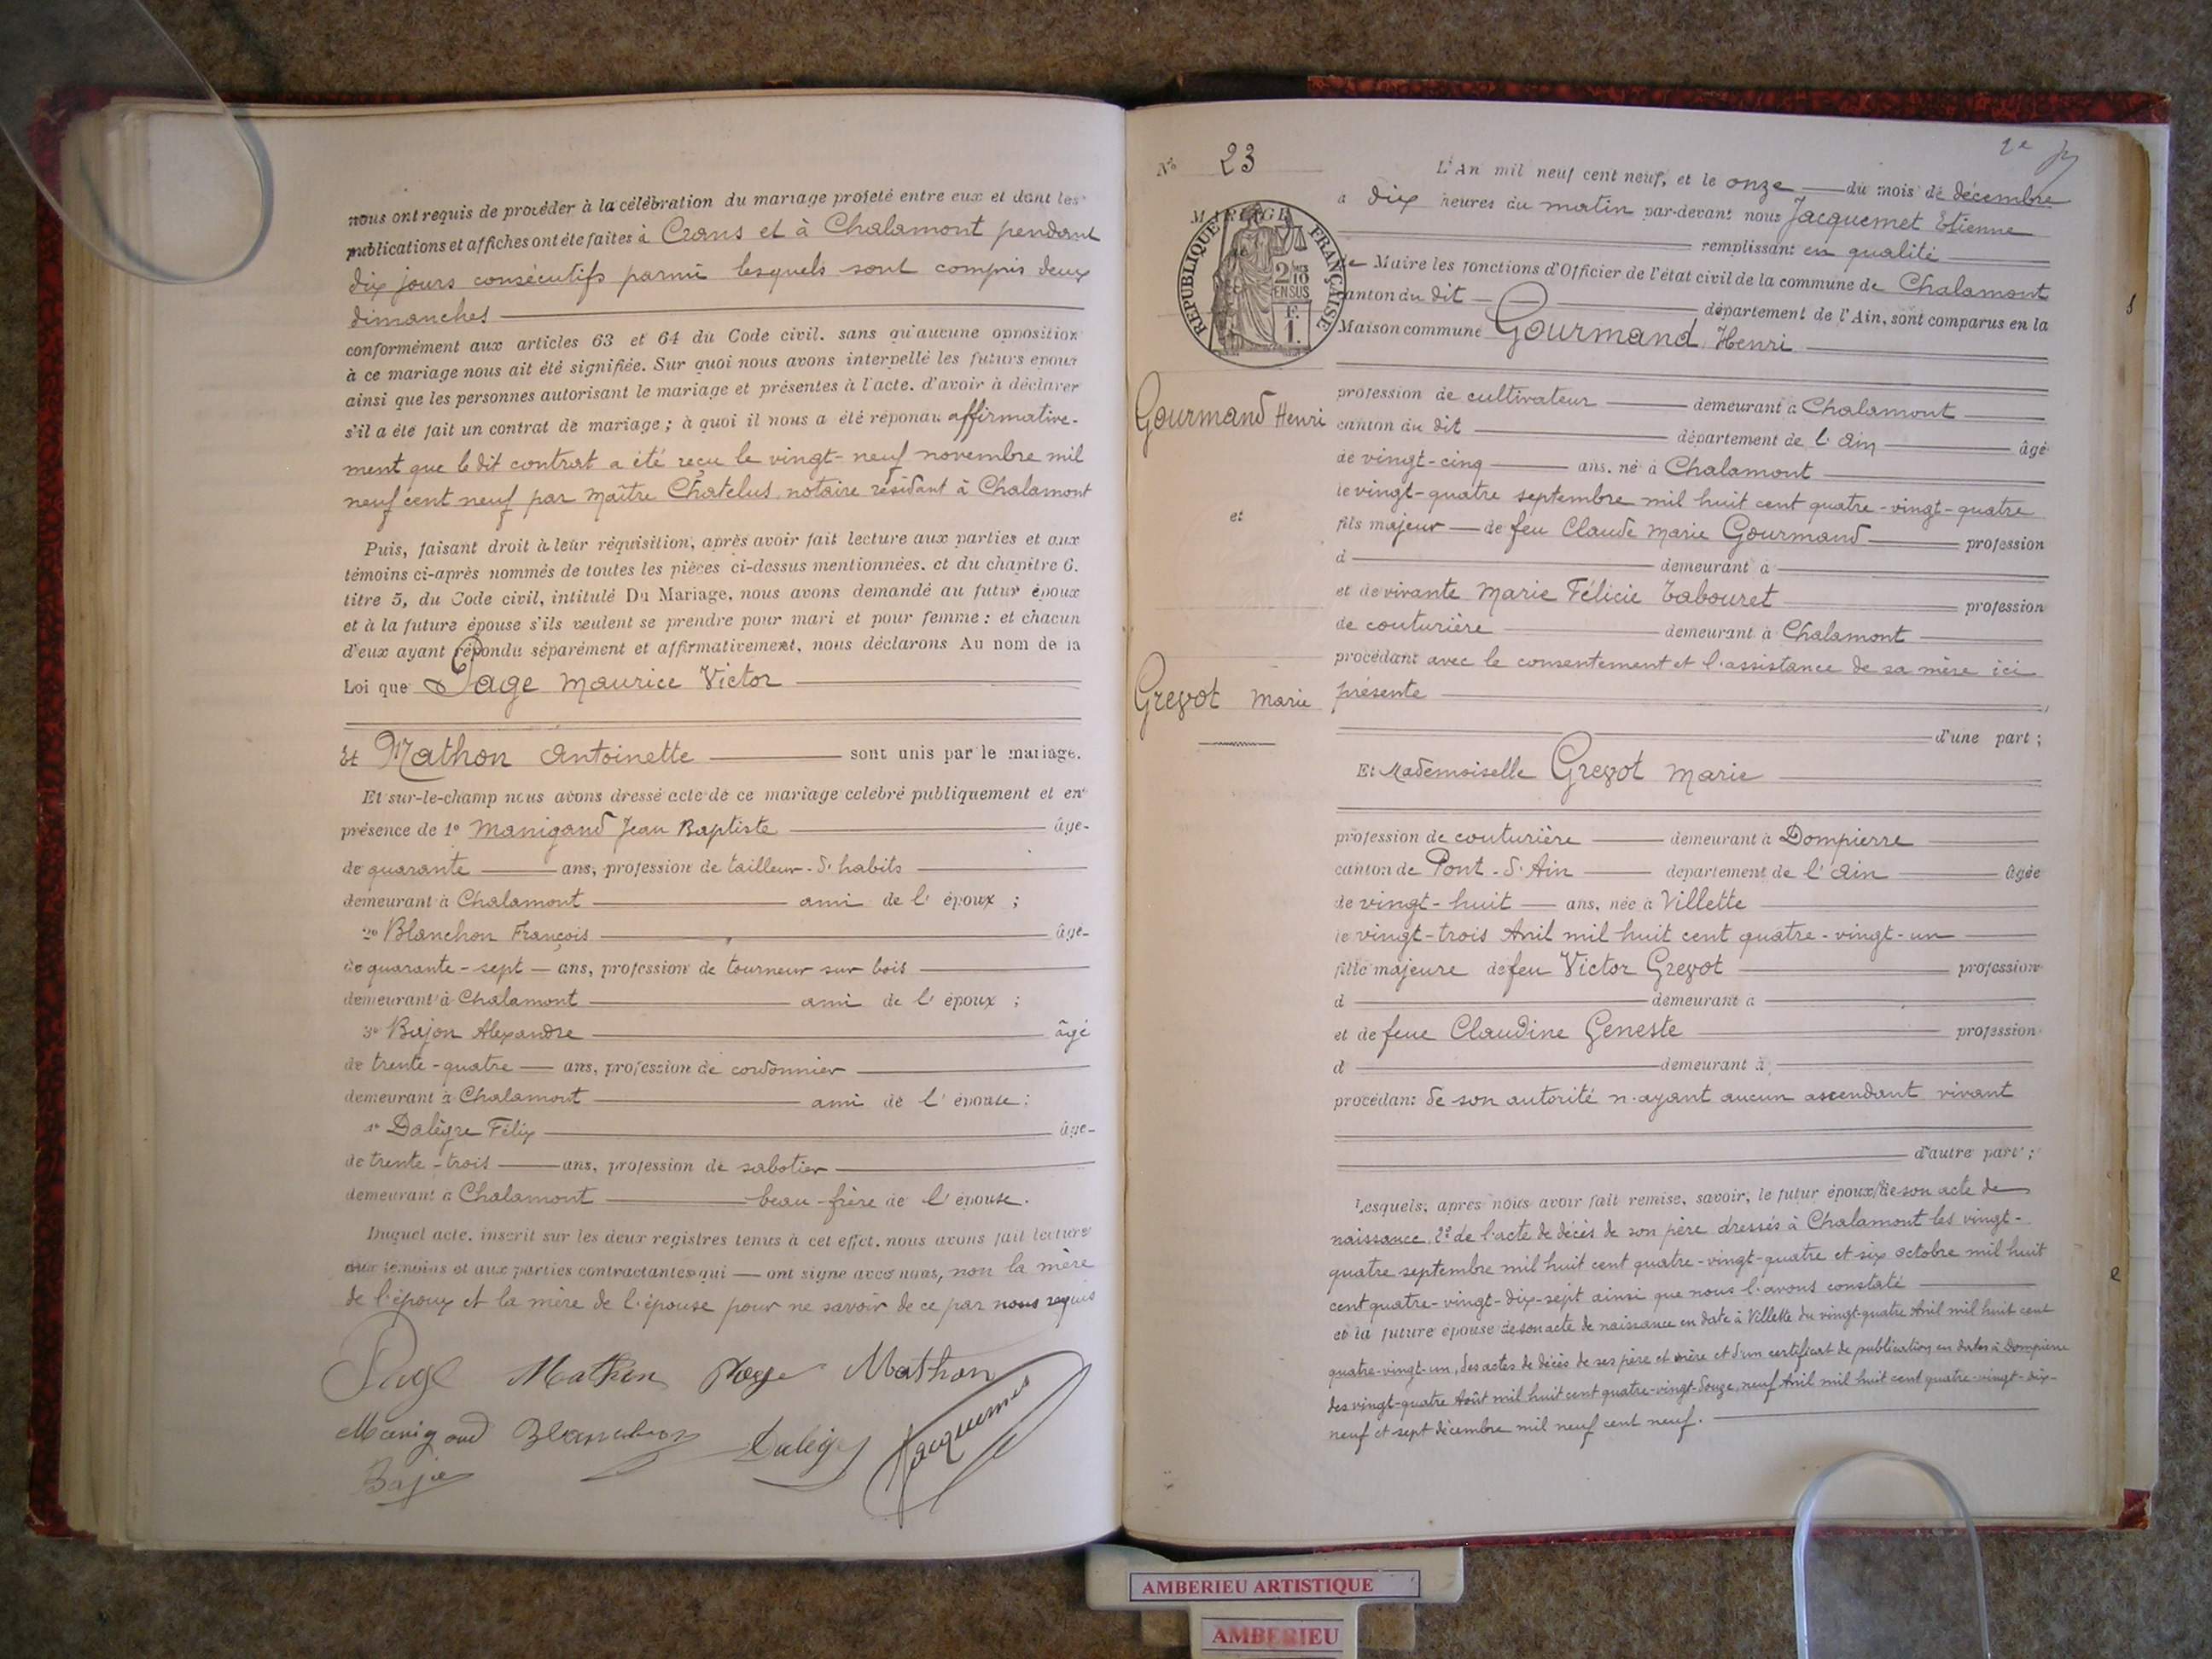 nous ont requis de procéder à la célébration du mariage projeté entre eux et dont les
publications et affiches ont été faites à Crans et à Chalamont pendant
dix jours consécutifs parmi lesquels sont compris deux
dimanches
conformément aux articles 63 et 64 du Code civil. sans qu'aucune opposition
à ce mariage nous ait été signifiée. Sur quoi nous avons interpellé les futurs époux
ainsi que les personnes autorisant le mariage et présentes à l'acte. d'avoir à déclarer
s'il a été fait un contrat de mariage ; à quoi il nous a été répondu affirmative-
ment que le dit contrat a été reçu le vingt-neuf novembre mil
neuf cent neuf par maître Chatelus notaire résidant à Chalamont
Puis, faisant droit à leur réquisition, après avoir fait lecture aux parties et aux
témoins ci-après nommés de toutes les pièces ci-dessus mentionnées. et du chapitre 6.
titre 5, du Code civil, intitulé Du Mariage, nous avons demandé au futur époux
et à la future épouse s'ils veulent se prendre pour mari et pour femme : et chacun
d'eux ayant répondu séparément et affirmativement, nous déclarons Au nom de la
Loi que Page Maurice Victor
Et Mathon Antoinette sont unis par le mariage.
Et sur-le-champ nous avons dressé acte de ce mariage célébré publiquement et en
présence de 1º Manigand Jean Baptiste âgé
de quarante ans, profession de tailleur-d'habits
demeurant à Chalamont ami de l'époux ;
2º Blanchon François âgé
de quarante-sept ans, profession de tourneur sur bois
demeurant à Chalamont ami de l'époux ;
3º Bujon Alexandre âgé
de trente-quatre ans, profession de cordonnier
demeurant à Chalamont ami de l'épouse ;
4º Dalègre Félix âgé
de trente-trois ans, profession de sabotier
demeurant à Chalamont beau-frère de l'épouse.
Duquel acte. inscrit sur les deux registres tenus à cet effet. nous avons fait lecture
aux témoins et aux parties contractantes qui ont signé avec nous, non la mère
de l'époux et la mère de l'épouse pour ne savoir de ce par nous requis
Page Mathon Page Mathon
Manigand Blanchon Dalègre Jacquemet
Nº 23
2e
MARIAGE
RÉPUBLIQUE FRANÇAISE
2/10 EN SUS
F. 1.
L'An mil neuf cent neuf, et le onze du mois de décembre
à dix heures du matin par-devant nous Jacquemet Etienne
remplissant en qualité
de Maire les fonctions d'Officier de l'état civil de la commune de Chalamont
canton du dit département de l'Ain, sont comparus en la
Maison commune Gourmand Henri
Gourmand Henri
et
Grezot Marie
profession de cultivateur demeurant à Chalamont
canton du dit département de l'Ain âgé
de vingt-cinq ans. né à Chalamont
le vingt-quatre septembre mil huit cent quatre-vingt-quatre
fils majeur de feu Claude Marie Gourmand profession
d demeurant à
et de vivante Marie Félicie Tabouret profession
de couturière demeurant à Chalamont
procédant avec le consentement et l'assistance de sa mère ici
présente
d'une part ;
Et Mademoiselle Grezot Marie
profession de couturière demeurant à Dompierre
canton de Pont-d'Ain département de l'Ain âgée
de vingt-huit ans, née à Villette
le vingt-trois Avril mil huit cent quatre-vingt-un
fille majeure de feu Victor Grezot profession
d demeurant à
et de feue Claudine Geneste profession
d demeurant à
procédant de son autorité n'ayant aucun ascendant vivant
d'autre part ;
Lesquels, après nous avoir fait remise, savoir, le futur époux 1º de son acte de
naissance 2º de l'acte de décès de son père dressés à Chalamont les vingt-
quatre septembre mil huit cent quatre-vingt-quatre et six octobre mil huit
cent quatre-vingt-dix-sept ainsi que nous l'avons constaté
et la future épouse de son acte de naissance en date à Villette du vingt-quatre Avril mil huit cent
quatre-vingt-un, des actes de décès de ses père et mère et d'un certificat de publication en dates à Dompierre
des vingt-quatre Août mil huit cent quatre-vingt-douze, neuf Avril mil huit cent quatre-vingt-dix-
neuf et sept décembre mil neuf cent neuf.
AMBERIEU ARTISTIQUE
AMBERIEU